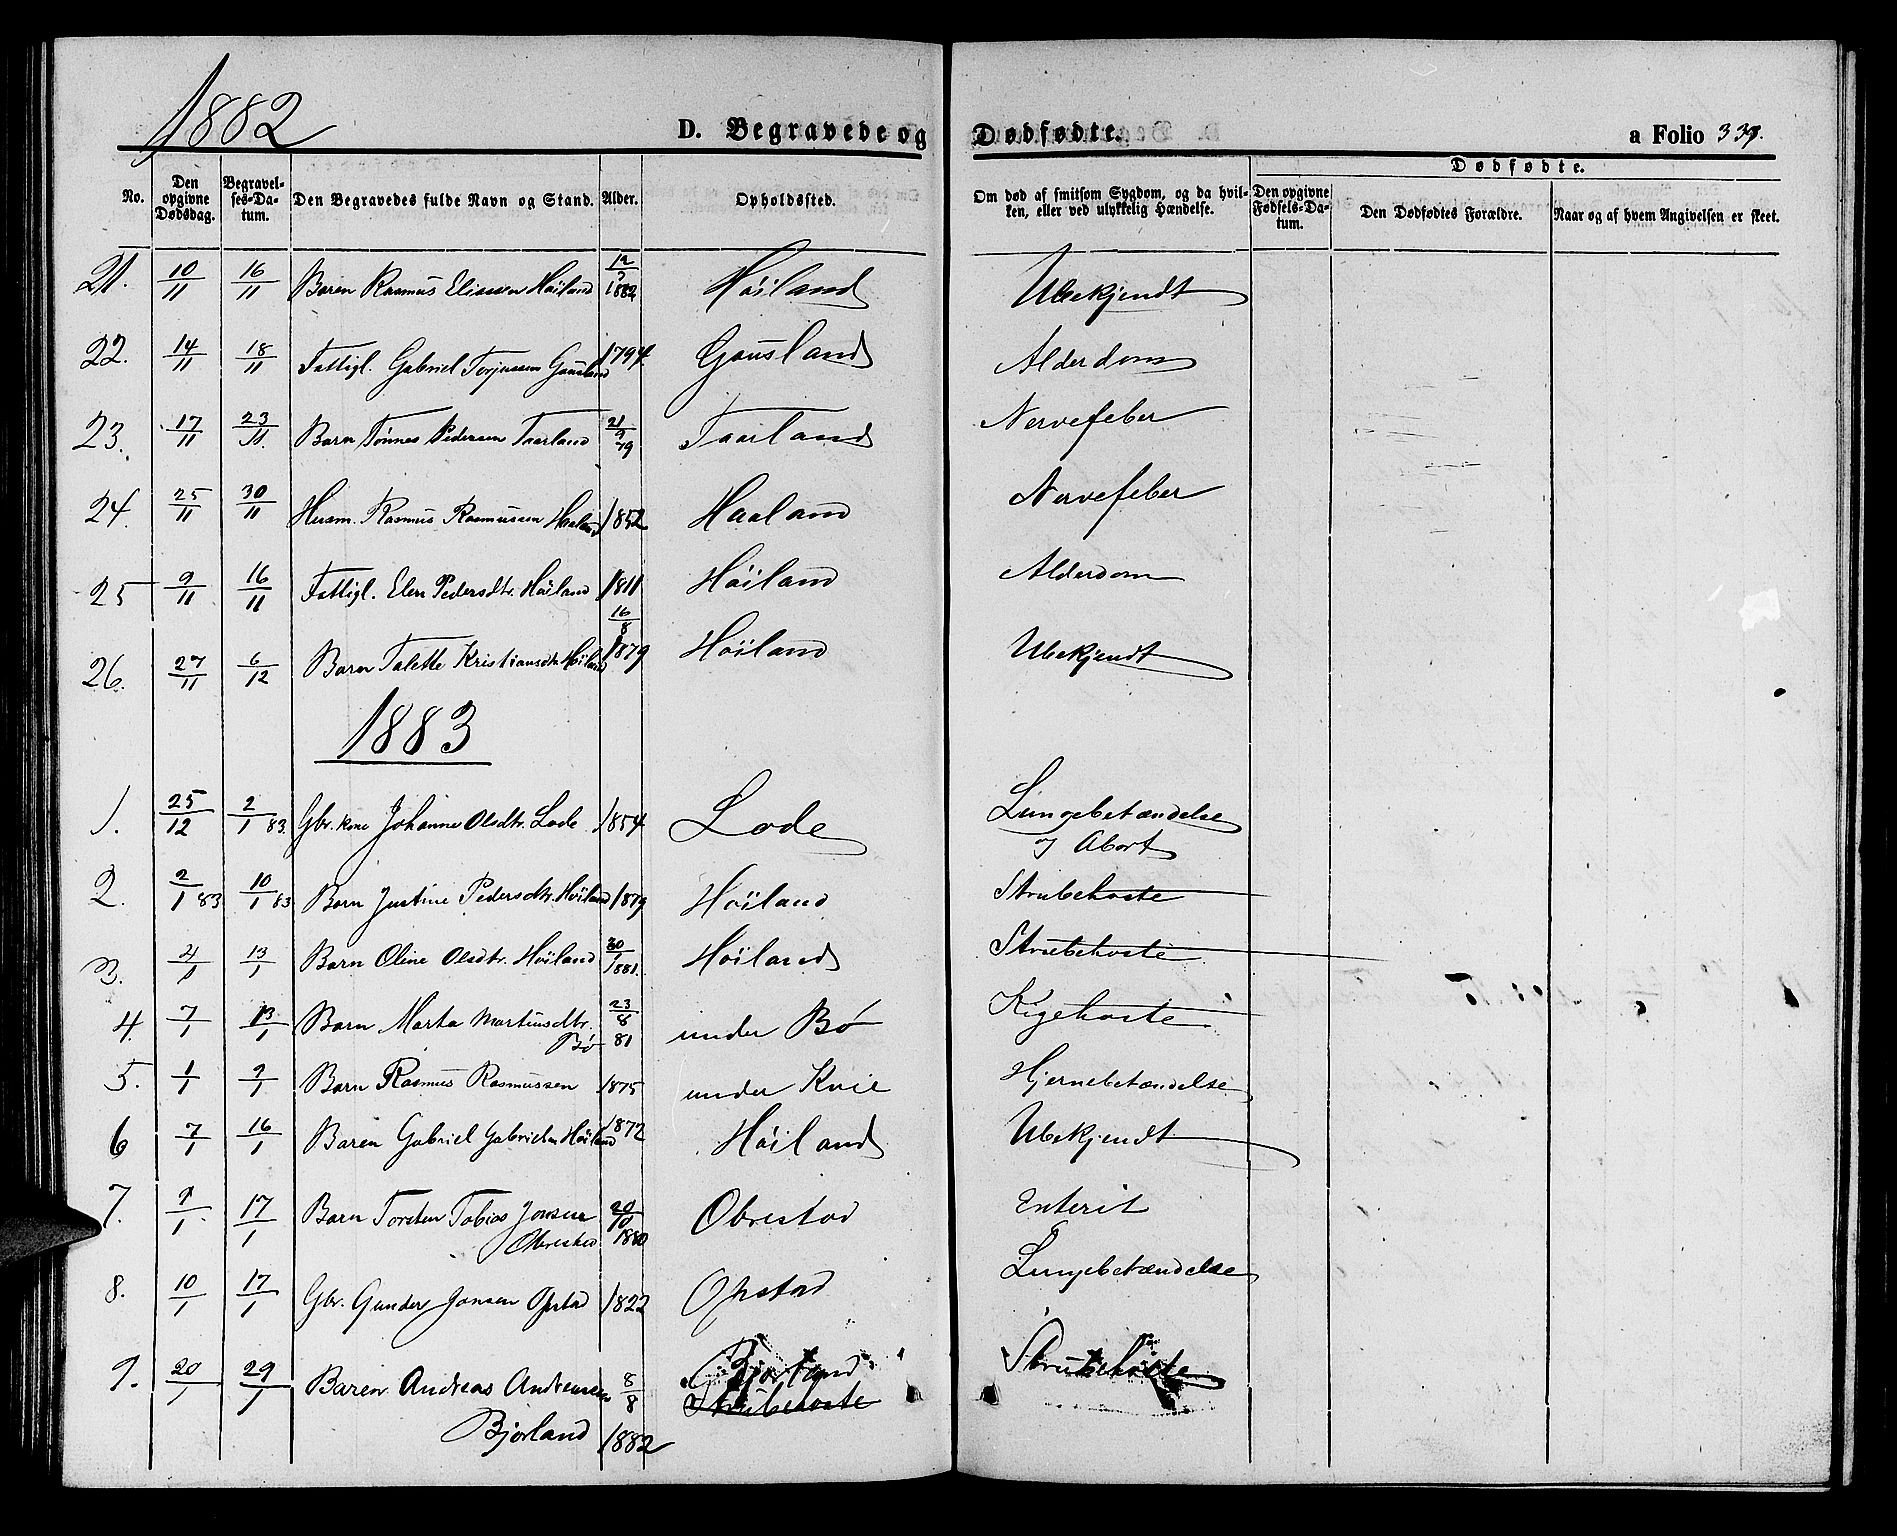 1882
D. Begravede og Dødfødte.
a Folio 339.
No.
Den opgivne Dødsdag.
Begravelses-Datum.
Den Begravedes fulde Navn og Stand.
Alder.
Opholdssted.
Om død af smitsom Sygdom, og da hvilken, eller ved ulykkelig Hændelse.
Dødfødte.
Den opgivne Fødsels-Datum.
Den Dødfødtes Forældre.
Naar og af hvem Angivelsen er skeet.
21. 10/11 16/11 Baren Rasmus Eliassen Høiland 1882 Høiland Ubekjendt
22. 14/11 18/11 Fattigl. Gabriel Torjussen Gausland 1794 Gausland Alderdom
23. 17/11 23/11. Barn Tønnes Pedersen Taarland 21/9 79 Taarland Nervefeber
24. 25/11 30/11 Husm. Rasmus Rasmussen Haaland 1852 Haaland Nervefeber
25 9/11 16/11 Fattigl. Elen Pedersdtr. Høiland 1811 Høiland Alderdom
26. 27/11 6/12 Barn Talette Kristiansdtr. Høiland 16/8 1879 Høiland Ubekjendt
1883
1. 25/12 2/1 83. Gbr. kone Johanne Olsdtr. Lode 1854 Lode Lungebetændelse og Abort
2. 2/1 83 10/1 83 Barn Justine Pedersdtr. Høiland 1879 Høiland Strubehoste
3. 4/1 13/1 Barn Oline Olsdtr. Høiland 1881. Høiland Strubehoste
4. 7/1 13/1 Barn Marta Martinsdtr. Bø 23/8 81 under Bø Kigehoste
5. 1/1 9/1 Barn Rasmus Rasmussen 1875 under Kvie Hjernebetændelse
6 7/1 16/1 Baren Gabriel Gabrielsen Høiland 1872 Høiland Ubekjendt
7. 9/1. 17/1 Barn Torsten Tobias Jonsen Obrestad 20/10 1880 Obrestad Enterit
8. 10/1 17/1 Gbr. Gunder Jonsen Opstad 1822 Opstad Lungebetændelse
9. 20/1 29/1 Baren Andreas Andreasen Bjorland 8/8 1882 Bjorland Strubehoste Strubehoste